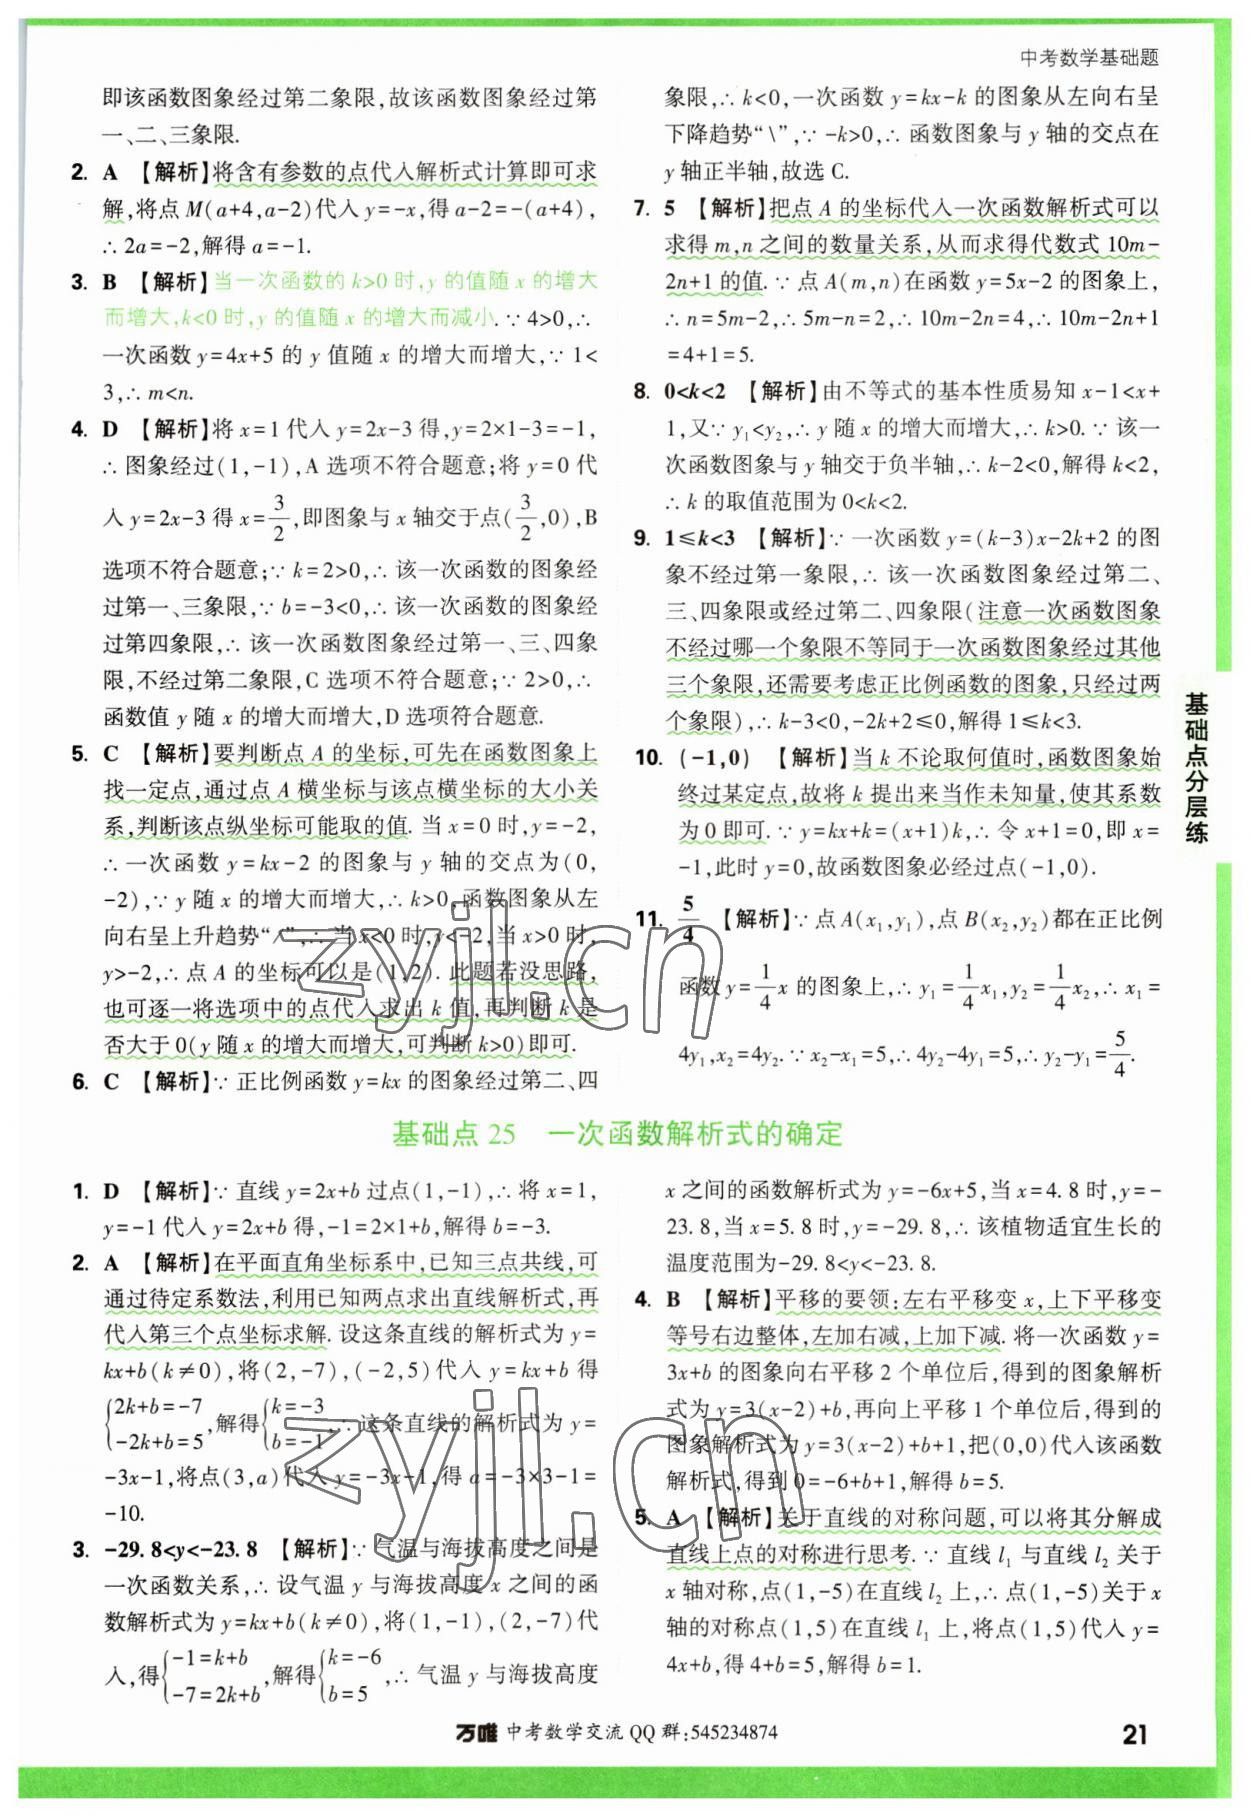 中考数学基础题
即该函数图象经过第二象限,故该函数图象经过第
一、二、三象限.
2. A 【解析】将含有参数的点代入解析式计算即可求
解,将点 M(a+4,a-2)代入 y=-x,得 a-2=-(a+4),
∴ 2a=-2,解得 a=-1.
3. B 【解析】当一次函数的 k>0 时,y 的值随 x 的增大
而增大,k<0 时,y 的值随 x 的增大而减小. ∵ 4>0,∴
一次函数 y=4x+5 的 y 值随 x 的增大而增大,∵ 1<
3,∴ m<n.
4. D 【解析】将 x=1 代入 y=2x-3 得,y=2×1-3=-1,
∴ 图象经过(1,-1),A 选项不符合题意;将 y=0 代
入 y=2x-3 得 x=3/2,即图象与 x 轴交于点(3/2,0),B
选项不符合题意;∵ k=2>0,∴ 该一次函数的图象经
过第一、三象限,∵ b=-3<0,∴ 该一次函数的图象经
过第四象限,∴ 该一次函数图象经过第一、三、四象
限,不经过第二象限,C 选项不符合题意;∵ 2>0,∴
函数值 y 随 x 的增大而增大,D 选项符合题意.
5. C 【解析】要判断点 A 的坐标,可先在函数图象上
找一定点,通过点 A 横坐标与该点横坐标的大小关
系,判断该点纵坐标可能取的值. 当 x=0 时,y=-2,
∴ 一次函数 y=kx-2 的图象与 y 轴的交点为(0,
-2),∵ y 随 x 的增大而增大,∴ k>0,函数图象从左
向右呈上升趋势“/”,∴ 当 x<0 时,y<-2,当 x>0 时,
y>-2,∴ 点 A 的坐标可以是(1,2). 此题若没思路,
也可逐一将选项中的点代入求出 k 值,再判断 k 是
否大于 0(y 随 x 的增大而增大,可判断 k>0)即可.
6. C 【解析】∵ 正比例函数 y=kx 的图象经过第二、四
象限,∴ k<0,一次函数 y=kx-k 的图象从左向右呈
下降趋势“\”,∵ -k>0,∴ 函数图象与 y 轴的交点在
y 轴正半轴,故选 C.
7. 5 【解析】把点 A 的坐标代入一次函数解析式可以
求得 m,n 之间的数量关系,从而求得代数式 10m-
2n+1 的值. ∵ 点 A(m,n)在函数 y=5x-2 的图象上,
∴ n=5m-2,∴ 5m-n=2,∴ 10m-2n=4,∴ 10m-2n+1
=4+1=5.
8. 0<k<2 【解析】由不等式的基本性质易知 x-1<x+
1,又∵ y₁<y₂,∴ y 随 x 的增大而增大,∴ k>0. ∵ 该一
次函数图象与 y 轴交于负半轴,∴ k-2<0,解得 k<2,
∴ k 的取值范围为 0<k<2.
9. 1≤k<3 【解析】∵ 一次函数 y=(k-3)x-2k+2 的图
象不经过第一象限,∴ 该一次函数图象经过第二、
三、四象限或经过第二、四象限(注意一次函数图象
不经过哪一个象限不等同于一次函数图象经过其他
三个象限,还需要考虑正比例函数的图象,只经过两
个象限),∴ k-3<0,-2k+2≤0,解得 1≤k<3.
10. (-1,0) 【解析】当 k 不论取何值时,函数图象始
终过某定点,故将 k 提出来当作未知量,使其系数
为 0 即可. ∵ y=kx+k=(x+1)k,∴ 令 x+1=0,即 x=
-1,此时 y=0,故函数图象必经过点(-1,0).
11. 5/4 【解析】∵ 点 A(x₁,y₁),点 B(x₂,y₂)都在正比例
函数 y=1/4x 的图象上,∴ y₁=1/4x₁,y₂=1/4x₂,∴ x₁=
4y₁,x₂=4y₂. ∵ x₂-x₁=5,∴ 4y₂-4y₁=5,∴ y₂-y₁=5/4.
基础点分层练
基础点 25 一次函数解析式的确定
1. D 【解析】∵ 直线 y=2x+b 过点(1,-1),∴ 将 x=1,
y=-1 代入 y=2x+b 得,-1=2×1+b,解得 b=-3.
2. A 【解析】在平面直角坐标系中,已知三点共线,可
通过待定系数法,利用已知两点求出直线解析式,再
代入第三个点坐标求解. 设这条直线的解析式为 y=
kx+b(k≠0),将(2,-7),(-2,5)代入 y=kx+b 得
{2k+b=-7 -2k+b=5,解得{k=-3 b=-1,∴ 这条直线的解析式为 y=
-3x-1,将点(3,a)代入 y=-3x-1,得 a=-3×3-1=
-10.
3. -29. 8<y<-23. 8 【解析】∵ 气温与海拔高度之间是
一次函数关系,∴ 设气温 y 与海拔高度 x 之间的函
数解析式为 y=kx+b(k≠0),将(1,-1),(2,-7)代
入,得{-1=k+b -7=2k+b,解得{k=-6 b=5,∴ 气温 y 与海拔高度
x 之间的函数解析式为 y=-6x+5,当 x=4. 8 时,y=-
23. 8,当 x=5. 8 时,y=-29. 8,∴ 该植物适宜生长的
温度范围为-29. 8<y<-23. 8.
4. B 【解析】平移的要领:左右平移变 x,上下平移变
等号右边整体,左加右减,上加下减. 将一次函数 y=
3x+b 的图象向右平移 2 个单位后,得到的图象解析
式为 y=3(x-2)+b,再向上平移 1 个单位后,得到的
图象解析式为 y=3(x-2)+b+1,把(0,0)代入该函数
解析式,得到 0=-6+b+1,解得 b=5.
5. A 【解析】关于直线的对称问题,可以将其分解成
直线上点的对称进行思考. ∵ 直线 l₁ 与直线 l₂ 关于
x 轴对称,点(1,-5)在直线 l₂ 上,∴ 点(1,-5)关于 x
轴的对称点(1,5)在直线 l₁ 上,将点(1,5)代入 y=
4x+b,得 4+b=5,解得 b=1.
万唯 中考数学交流 QQ 群:545234874
21
zyjl.cn
zyjl.cn